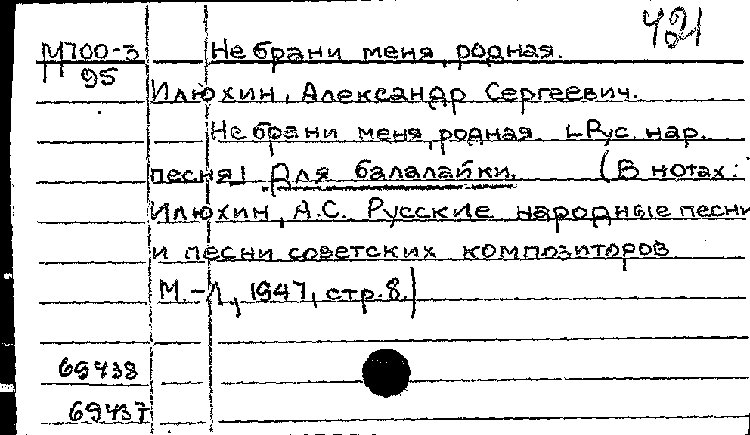 421
М700-3 Не брани меня, родная.
95
Илюхин, Александр Сергеевич.
Не брани меня, родная. [-Рус. нар.
песня] Для балалайки. (В нотах:
Илюхин, А.С. Русские народные песни
и песни советских композиторов
М.-Л, 1947, стр.8.)
69438
69437